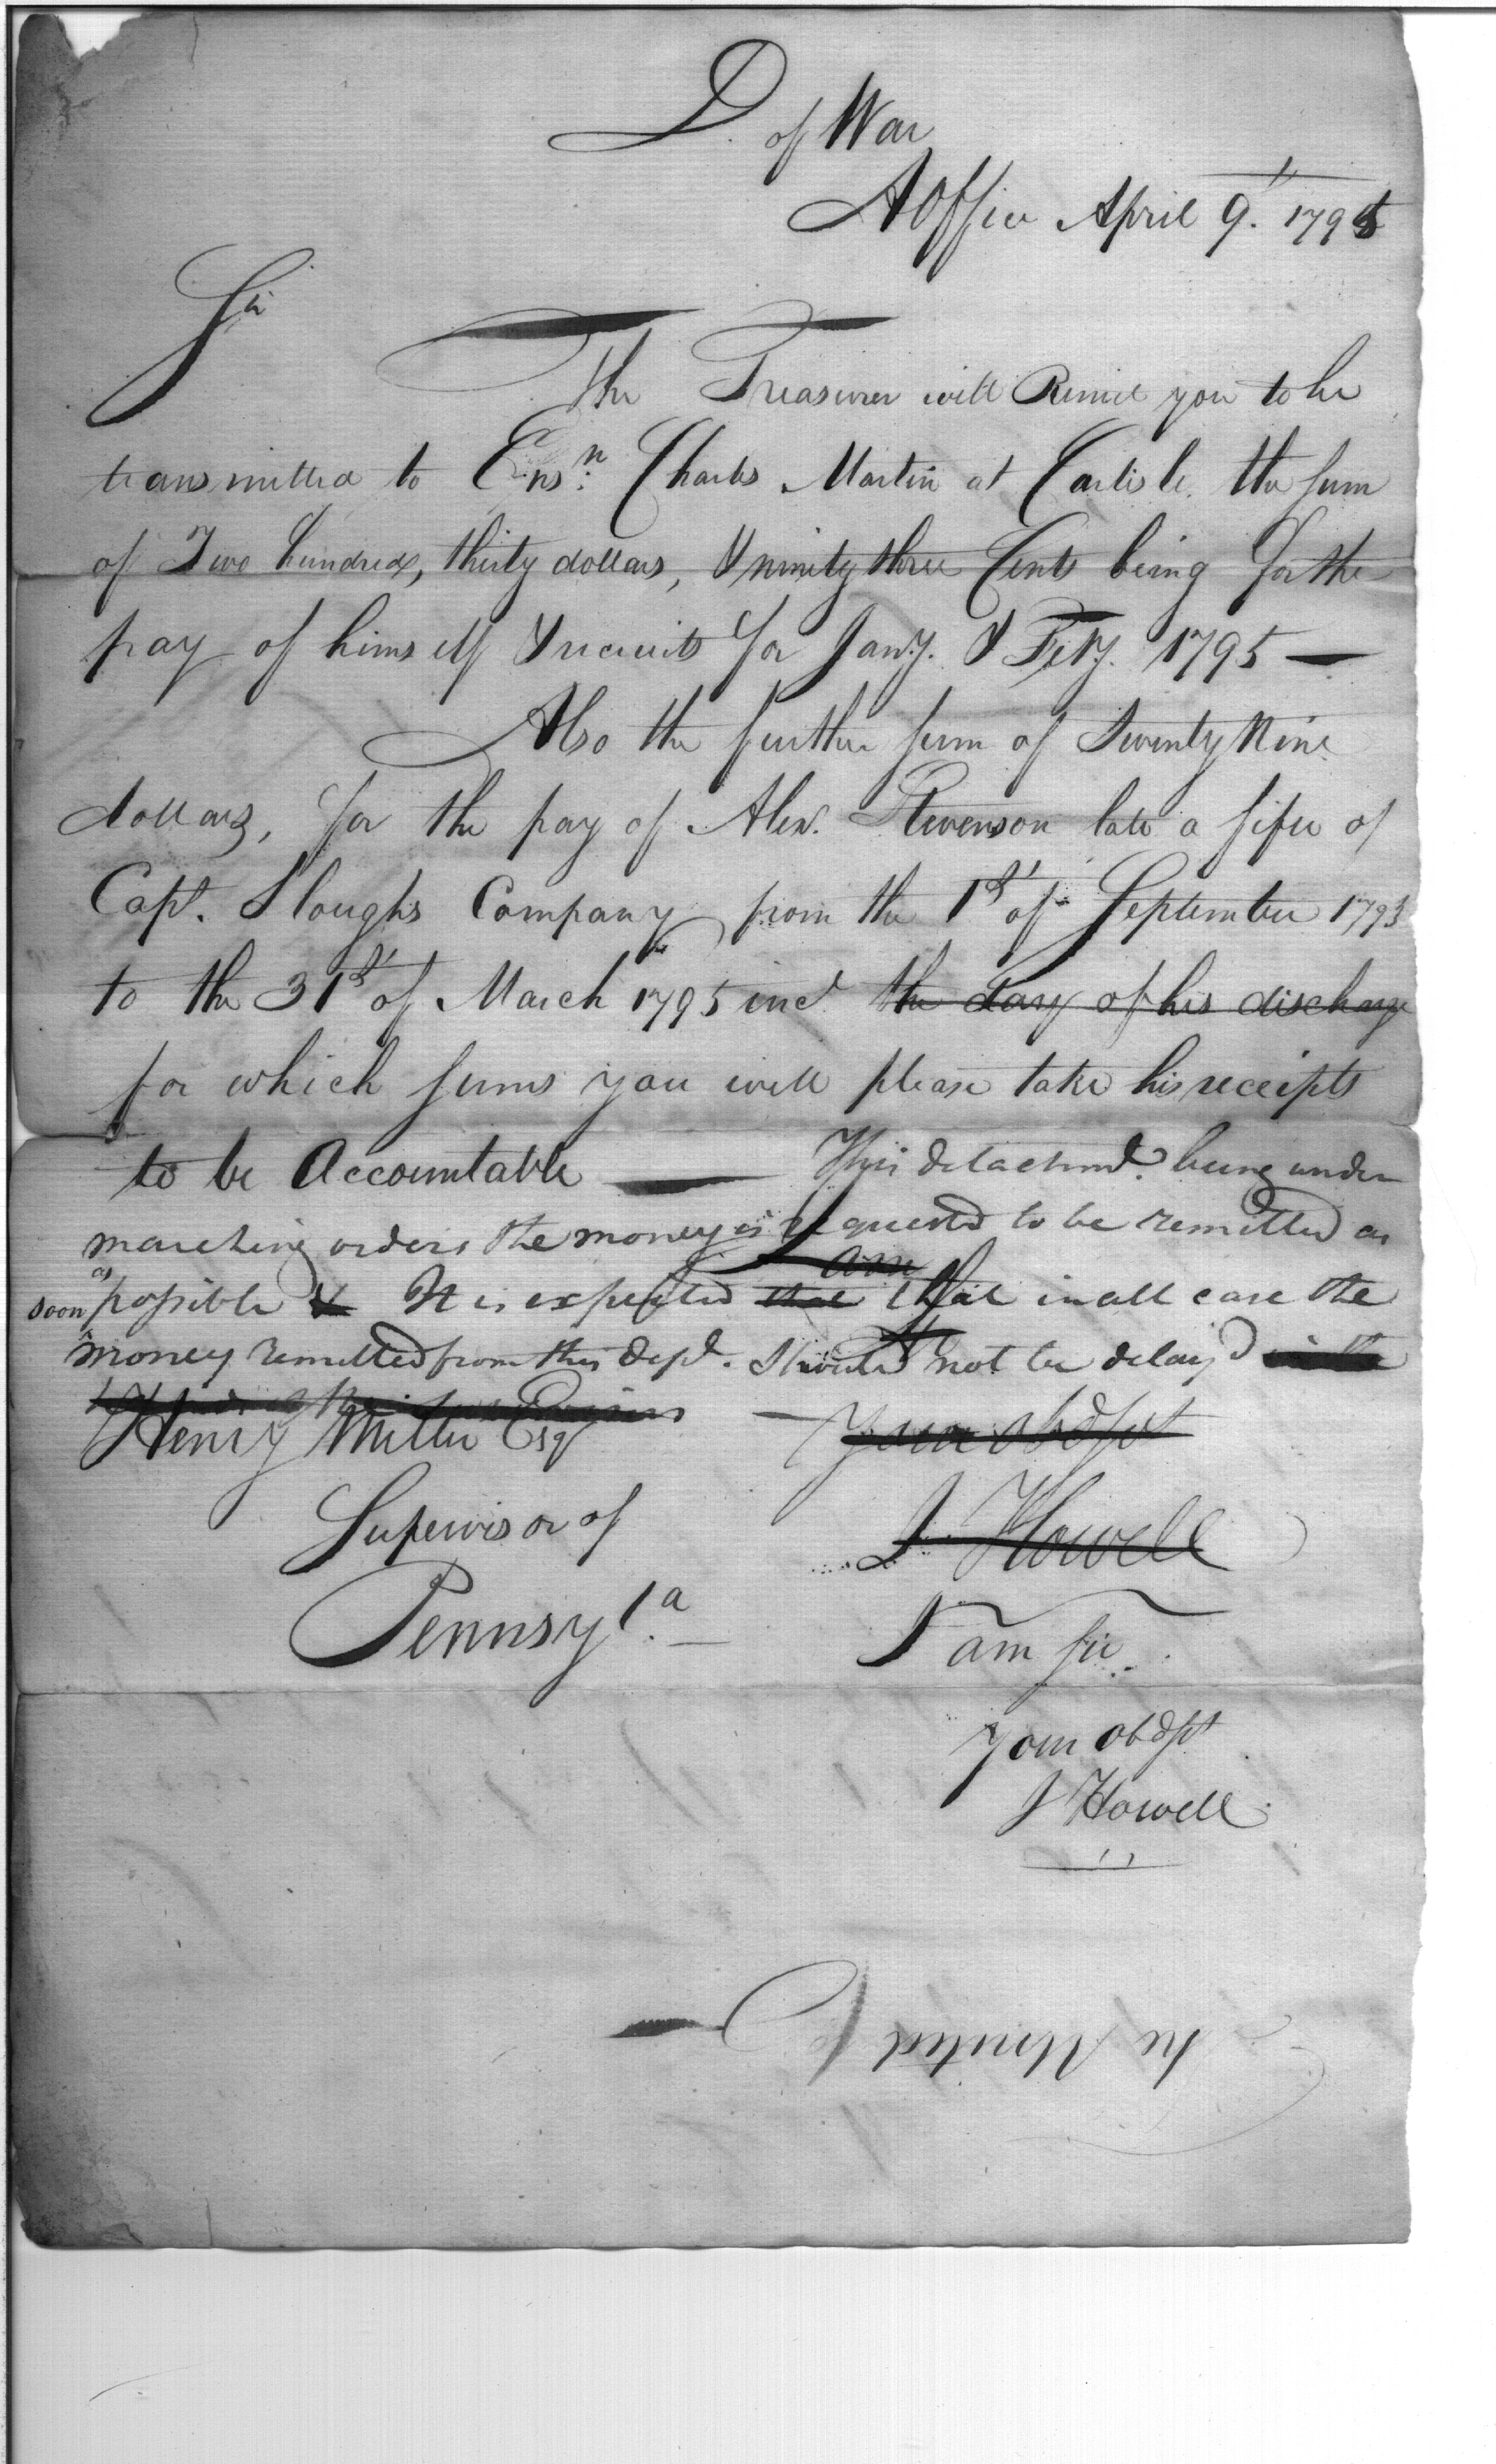 D. of War
A Office April 9. 1795
Sir
The Treasurer will Remit you to be
transmitted to Ens.n Charles Martin at Carlisle the sum
of Two hundred, thirty dollars, & ninety three Cents being for the
pay of himself & recruits for Jan.y. & Feb.y. 1795 —
Also the further sum of Twenty Nine
dollars, for the pay of Alex.r Stevenson late a fifer of
Capt. Sloughs Company from the 1st of September 1793
to the 31st of March 1795 incl. the day of his discharge
for which sums you will please take his receipts
to be Accountable — This detachmt. being under
marching orders the money is requested to be remitted as
soon as possible & It is expected that that in all case the
money remitted from this Dept. should not be delay'd in the
Henry Miller Esqr — your obdst
Supervisor of J. Howell
Pennsyl.a — I am Sir
your obdst
J Howell
The United